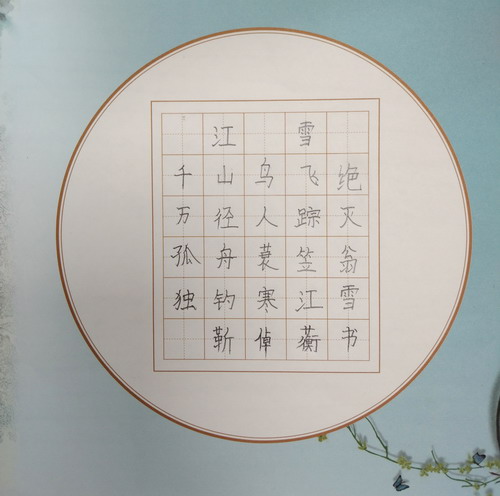 江雪
千山鸟飞绝
万径人踪灭
孤舟蓑笠翁
独钓寒江雪
靳倬蘅书